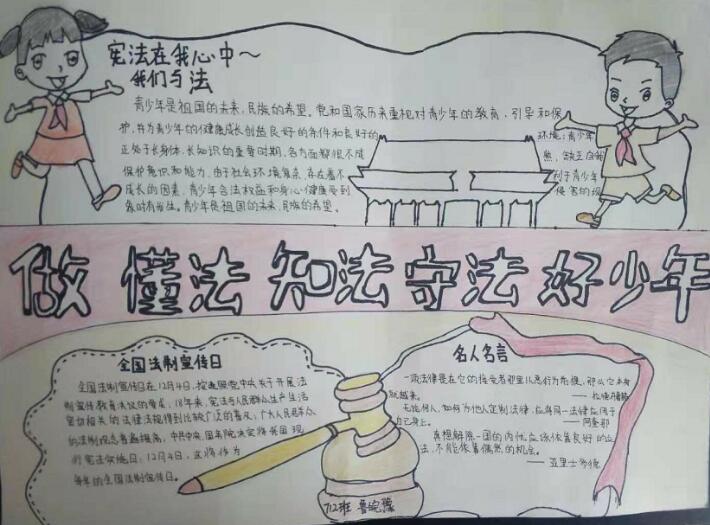 宪法在我心中～
我们与法
青少年是祖国的未来,民族的希望。党和国家历来重视对青少年的教育,引导和保
护,并为青少年的健康成长创造良好的条件和良好的环境;青少年
正处于长身体、长知识的重要时期,各方面都很不成熟,缺乏自我
保护意识和能力,由于社会环境复杂,存在着不利于青少年
成长的因素,青少年合法权益和身心健康受到侵害的现
象时有发生。青少年是祖国的未来,民族的希望。
做 懂法 知法 守法 好少年
全国法制宣传日
全国法制宣传日在12月4日,按照党中央关于开展法
制宣传教育决议的要求,18年来,宪法与人民群众生产生活
密切相关的法律法规得到比较广泛的普及,广大人民群众
的法制观念普遍提高,中共中央、国务院决定将我国现
行宪法实施日,12月4日,
每年的全国法制宣传日。
名人名言
一项法律是在它的接受者那里以恶行为前提,那么它本身
就越来。
无论何人,如何为他人制定法律,应将同一法律应用于
自己身上。 ——阿奎那
真想解除一国的内忧,应该依靠良好的立
法,不能依靠偶然的机会。
——亚里士多德
712班 鲁